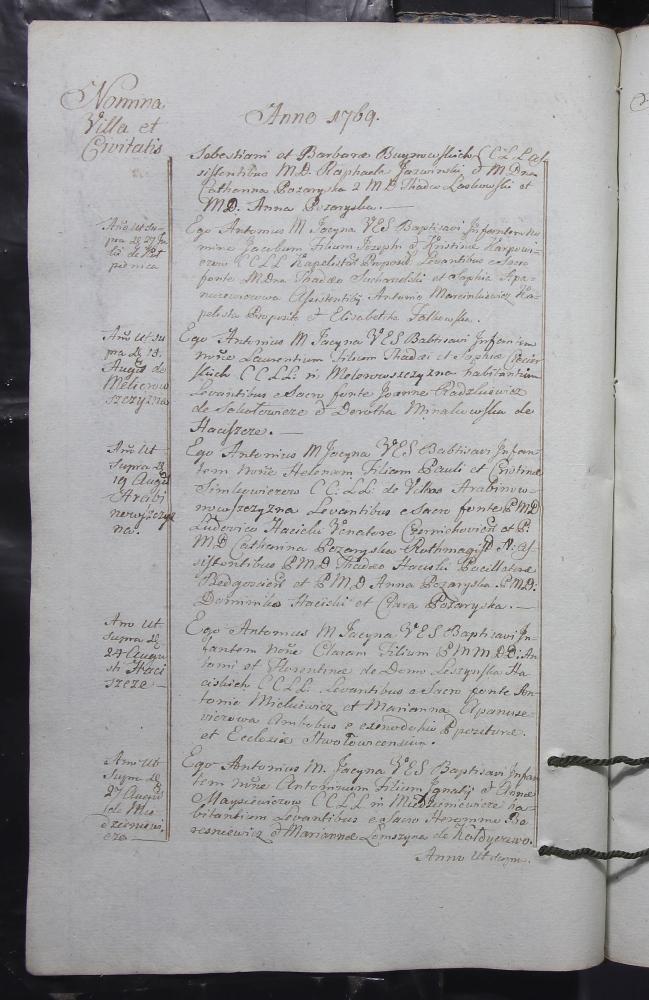 Nomina
Villa et
Civitatis
Anno 1769.
Sebestiani et Barbaræ Buynowskich CCLL As
sistentibus M.D. Raphaele Jazwinski, & M Dna
Catharina Pozaryska 2 M D Thadeo Laskowski et
M.D. Anna Pozaryska. —
Año ut su-
pra d 27 Ju
lii de
Ego Antonius M Jacyna VES Baptisavi Infantem No
mine Jacobum Filium Josephi & Kristinæ Karpowi-
czow CCLL Kapelistæ Proposit Levantibus e Sacro
fonte M.Dno Thadæo Sucharelski et Sophia
Assistentibus Antonio Marcinkiewicz Ka-
pelista Proposito & Elisabetha Falkowska.
Año ut su
pra d 13
Augus de
Melerow
szczyzna
Ego Antonius M Jacyna VES Babtisavi Infantem
noñe Laurentium Filium Thadæi et Sophiæ
skich CCLL in Melerowszczyzna habitantium
Levantibus e Sacro fonte Joanne Radziuiewicz
de Sokolowicze & Dorotha Minalowska de
Haciszcze. —
Año ut
Supra d
19 Augus
Arabi
nowszczyz
na.
Ego Antonius M Jacyna VES Babtisavi Infan-
tem Noñe Helenam Filiam Pauli et Cristinæ
Simkowiczow C:C:LL: de Villa Arabinow-
nowszczyzna Levantibus e Sacro fonte P M D
Ludovico Haciski Venatore Czernichovien et P:
M D Catharina Pozaryska Rothmagist N: As-
sistentibus P M D Thadæo Haciski Pocillatore
Bidgoscien et P M D Anna Pozaryska P M D:
Dominiko Haciski et Clara Pozaryska. —
Ano ut
Supra d
24 Augu
sti Haci
szcze —
Ego Antonius M Jacyna VES Baptisavi In-
fantem noñe Claram Filiam P M M D D: An
toni et Florentinæ de Domo Leszynska Ha
ciskich CCLL. Levantibus e Sacro fonte An-
tonio Mickiewicz et Marianna Apanuse-
wiczowa Ambobus e xenodochio Ppositure
et Ecclesia Stwolovicensium.
Ano ut
Supra d
27 Augus
de Mie
dzieniewi
cze —
Ego Antonius M. Jacyna VES Baptisavi Infan
tem noñe Antonium Filium Ignatij & Annæ
Maysiewiczow CCLL in Miedzieniewicze ha-
bitantium Levantibus e Sacro Heronimo Bo
resniewicz & Marianna Lomszyna de Koldyczewo.
Anno Ut supra.